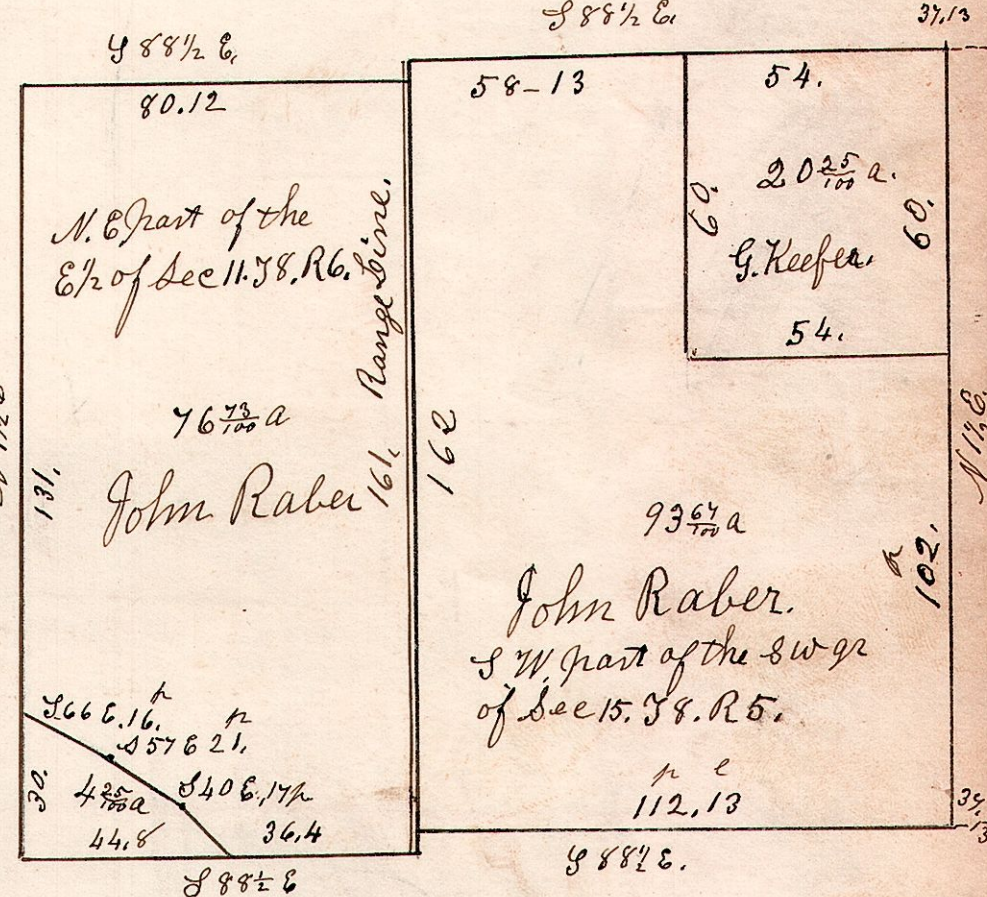 S 88½ E.
80.12
N. E part of the
E½ of Sec 11. T8. R6.
Range Line.
76 73/100 a
John Raber
131.
161.
S66 E. 16. p
S57 E 21. p
S40 E. 17 p
30.
4 25/100 a
44.8
36.4
S 88½ E
S 88½ E.
37.13
58-13
54.
20 25/100 a.
60.
60.
G. Keefer.
54.
162
N 1½ E.
93 67/100 a
p
102.
John Raber.
S W. part of the SW qr
of Sec 15. T8. R5.
p l
112,13
S 88½ E.